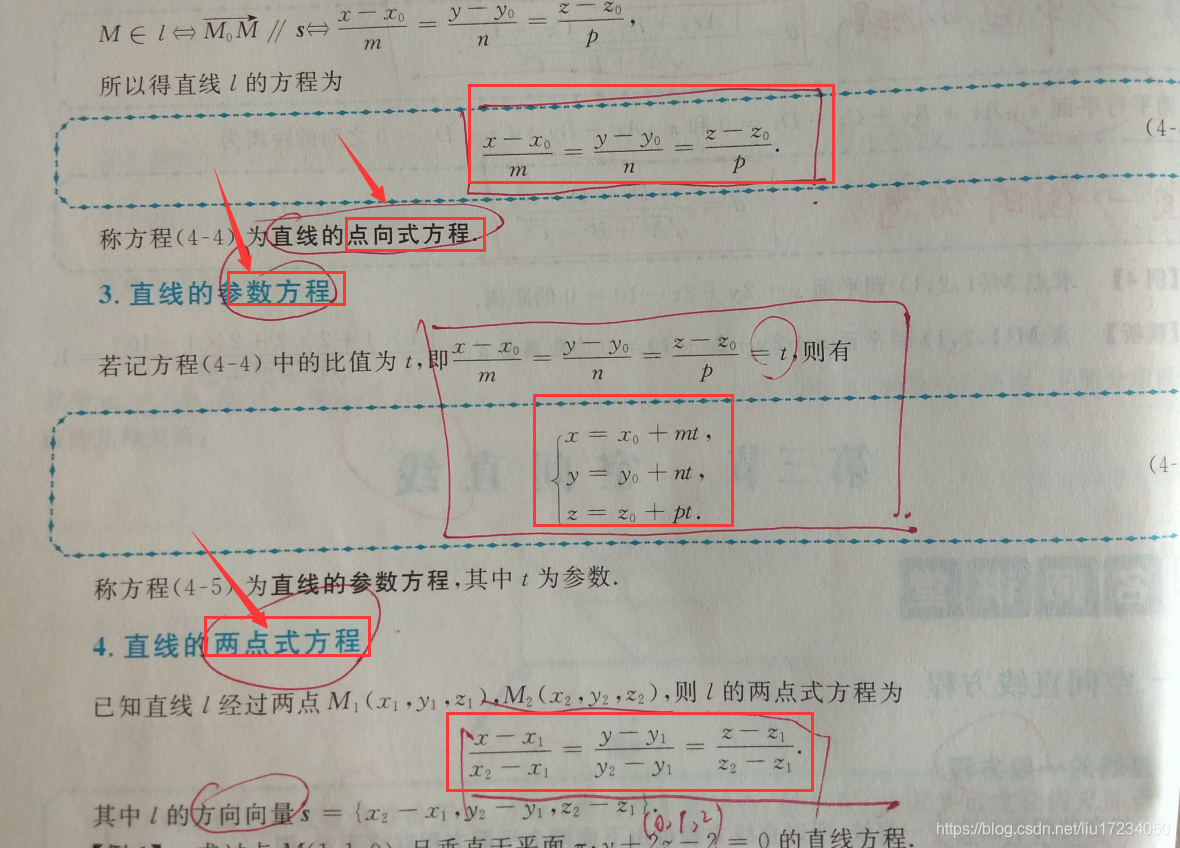 M ∈ l ⇔ $\overrightarrow{M_0M}$ ∥ s ⇔ $\frac{x-x_0}{m} = \frac{y-y_0}{n} = \frac{z-z_0}{p}$,
所以得直线 l 的方程为
$\frac{x-x_0}{m} = \frac{y-y_0}{n} = \frac{z-z_0}{p}$.
(4-
称方程(4-4)为直线的点向式方程.
3. 直线的参数方程
若记方程(4-4)中的比值为 t,即 $\frac{x-x_0}{m} = \frac{y-y_0}{n} = \frac{z-z_0}{p} = t$,则有
x = x₀ + mt,
y = y₀ + nt,
(4-
z = z₀ + pt.
称方程(4-5)为直线的参数方程,其中 t 为参数.
4. 直线的两点式方程
已知直线 l 经过两点 M₁(x₁,y₁,z₁),M₂(x₂,y₂,z₂),则 l 的两点式方程为
$\frac{x-x_1}{x_2-x_1} = \frac{y-y_1}{y_2-y_1} = \frac{z-z_1}{z_2-z_1}$.
其中 l 的方向向量 s = {x₂ − x₁,y₂ − y₁,z₂ − z₁}.
(0,1,2)
= 0 的直线方程.
https://blog.csdn.net/liu17234050